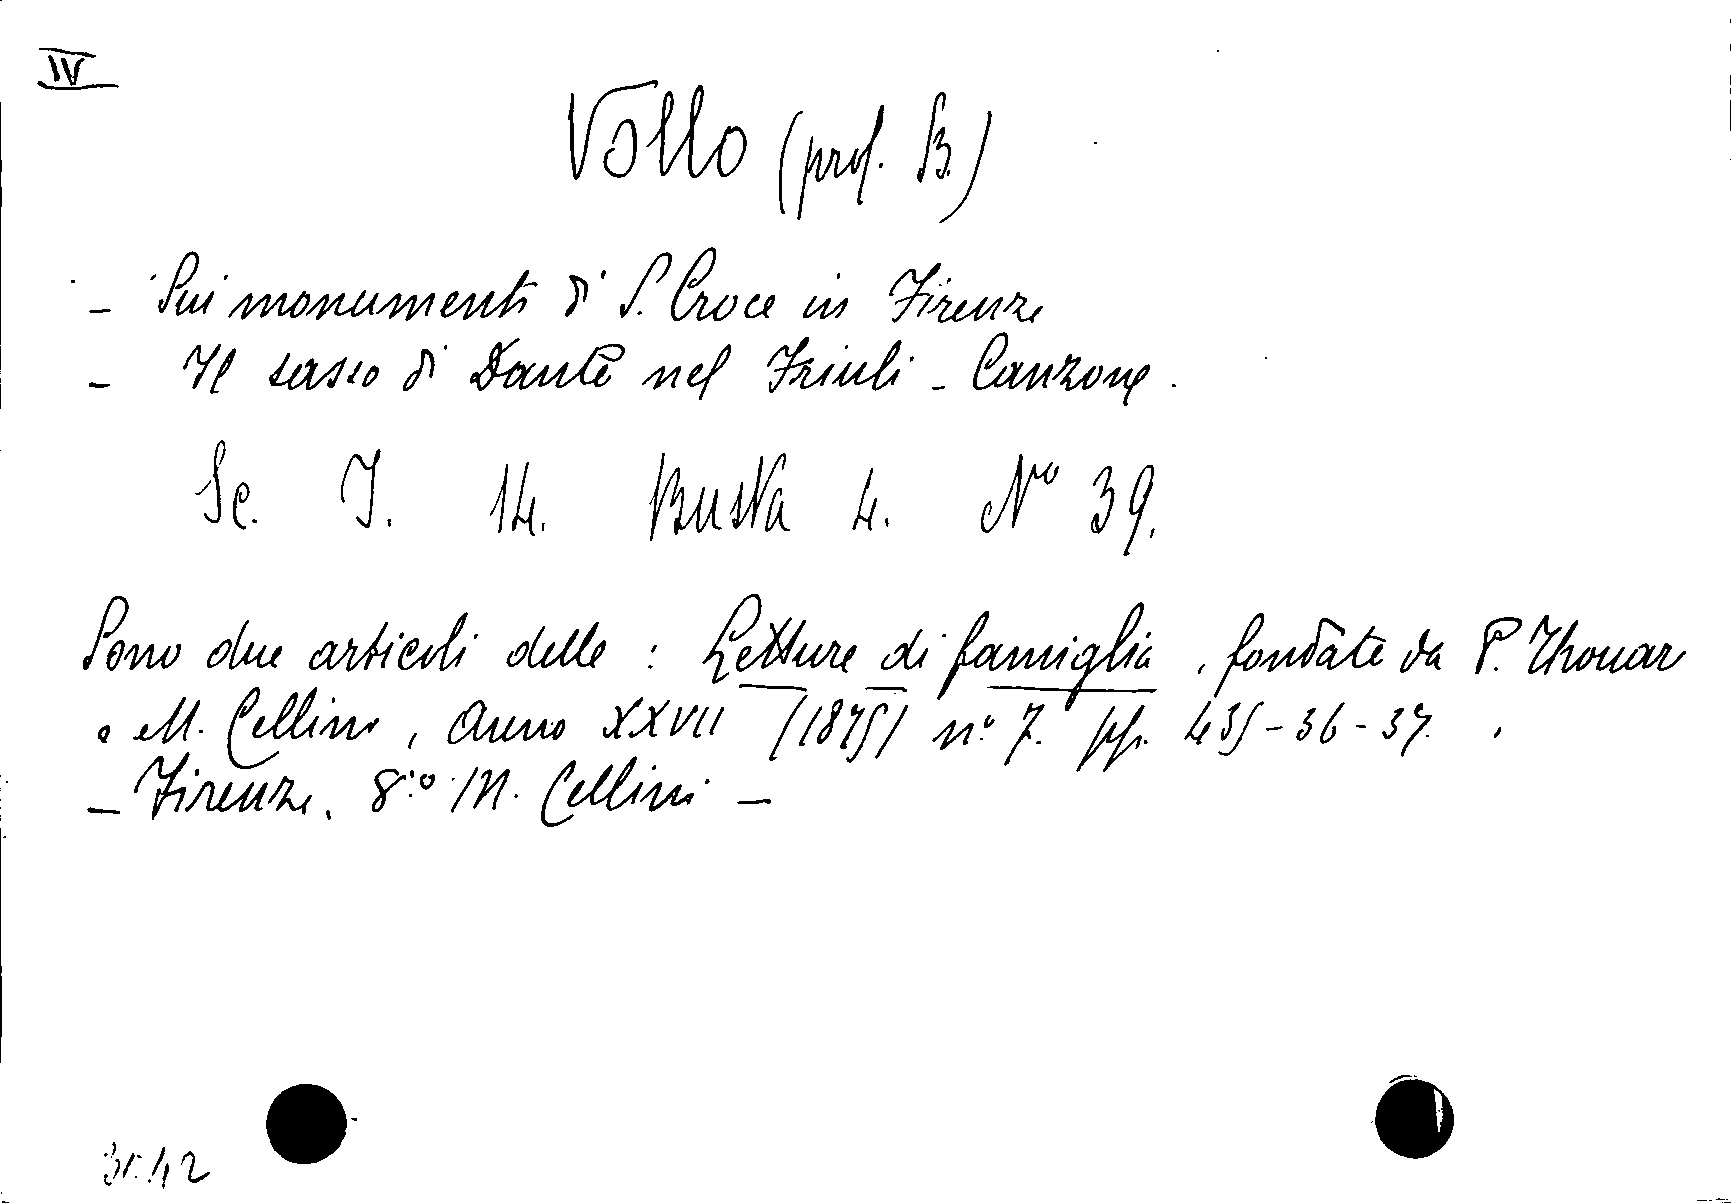 IV
Vollo (prof. B.)
- Sui monumenti di S. Croce in Firenze
- Il sasso di Dante nel Friuli - Canzone.
Sc. I. 14. Busta 4. Nº 39.
Sono due articoli delle : Letture di famiglia, fondate da P. Thouar
e M. Cellini, Anno XXVII (1875) nº 7. pp. 435-36-37.
- Firenze. 8º M. Cellini -